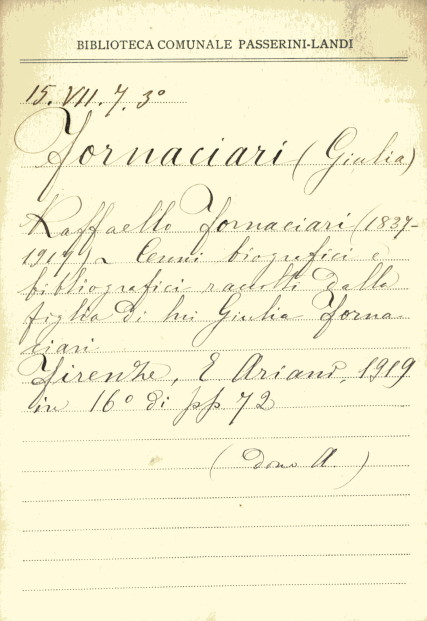 BIBLIOTECA COMUNALE PASSERINI-LANDI
15. VII. 7. 3º
Fornaciari (Giulia)
Raffaello Fornaciari (1837-
1917) - Cenni biografici e
bibliografici raccolti dalla
figlia di lui Giulia Forna-
ciari
Firenze, E Ariani, 1919
in 16º di pp 72
(dono A )